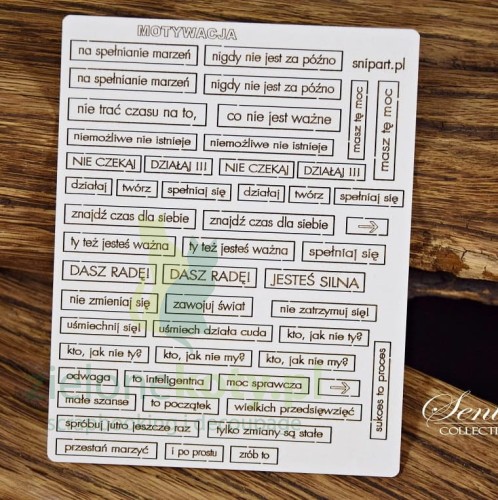 MOTYWACJA
na spełnianie marzeń nigdy nie jest za późno snipart.pl
na spełnianie marzeń nigdy nie jest za późno masz tę moc masz tę moc
nie trać czasu na to, co nie jest ważne
niemożliwe nie istnieje niemożliwe nie istnieje
NIE CZEKAJ DZIAŁAJ !!! NIE CZEKAJ DZIAŁAJ !!!
działaj twórz spełniaj się działaj twórz spełniaj się
znajdź czas dla siebie znajdź czas dla siebie
ty też jesteś ważna ty też jesteś ważna spełniaj się
DASZ RADĘ! DASZ RADĘ! JESTEŚ SILNA
nie zmieniaj się zawojuj świat nie zatrzymuj się!
uśmiechnij się! uśmiech działa cuda kto, jak nie ty?
kto, jak nie ty? kto, jak nie my? kto, jak nie my?
odwaga to inteligentna moc sprawcza sukces to proces
małe szanse to początek wielkich przedsięwzięć
spróbuj jutro jeszcze raz tylko zmiany są stałe
przestań marzyć i po prostu zrób to
COLLECTI